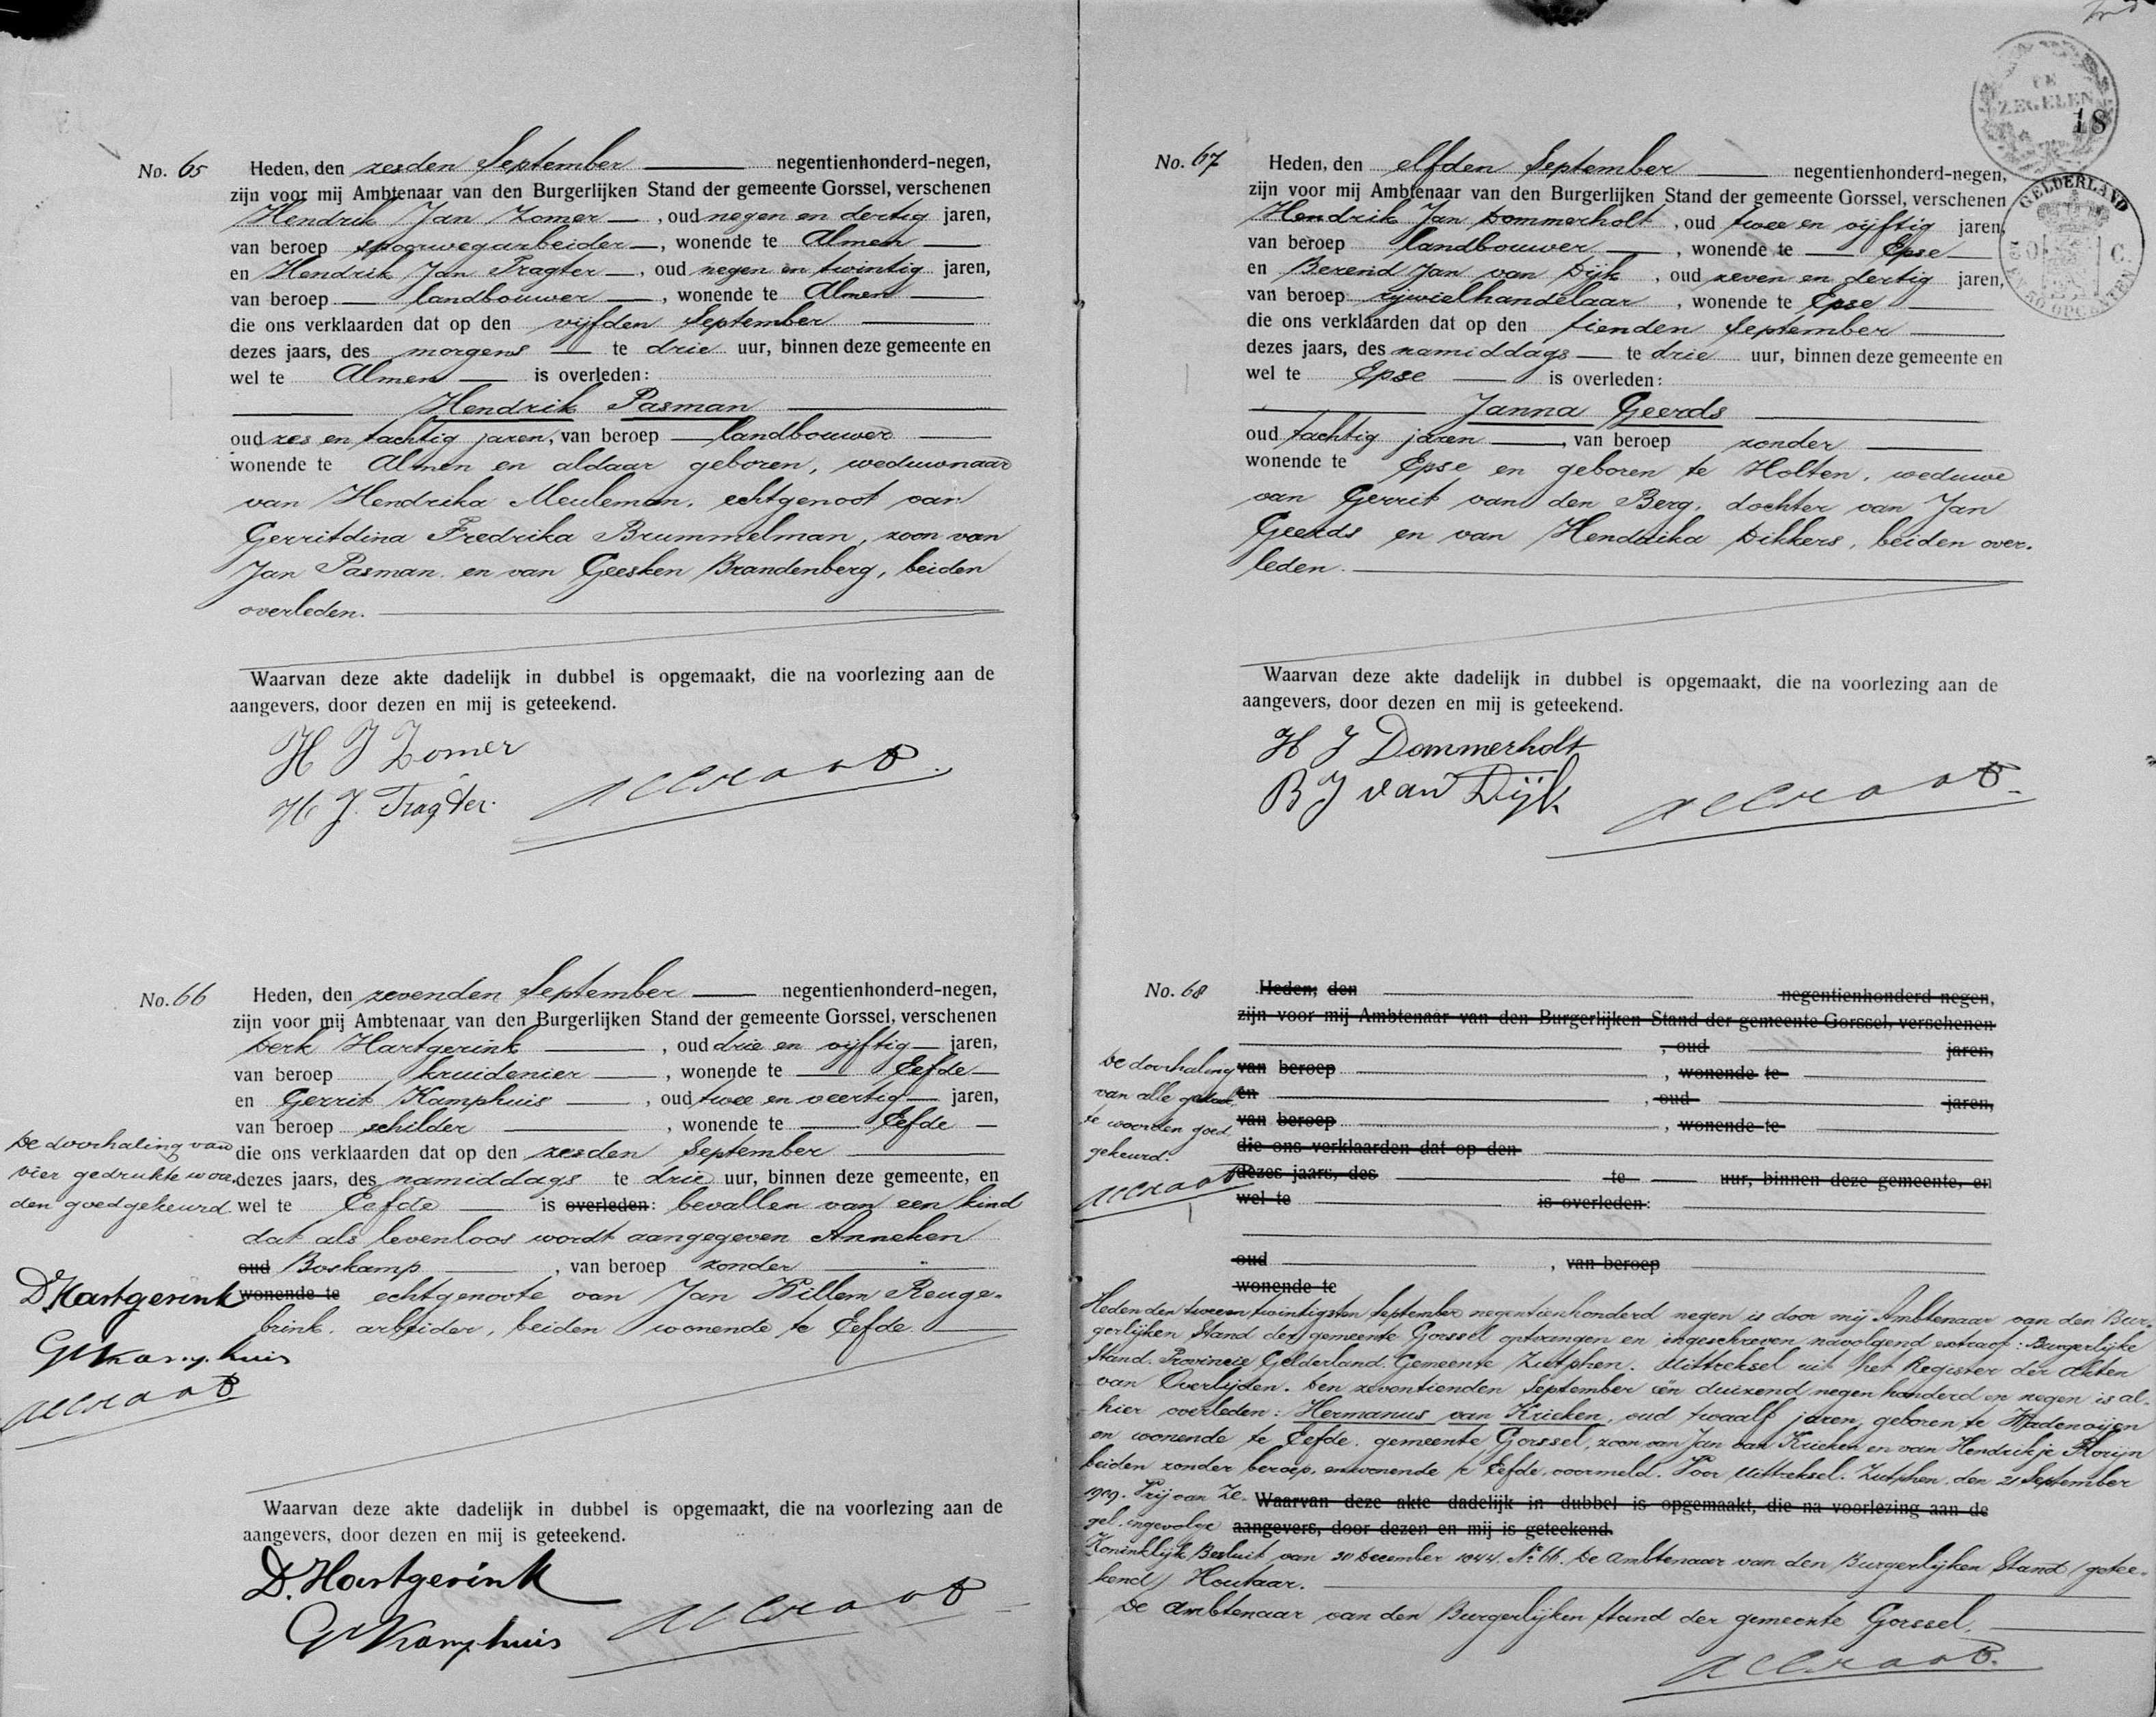 No. 65 Heden, den zesden September negentienhonderd-negen,
zijn voor mij Ambtenaar van den Burgerlijken Stand der gemeente Gorssel, verschenen
Hendrik Jan Zomer, oud negen en dertig jaren,
van beroep spoorwegarbeider, wonende te Almen
en Hendrik Jan Tragter, oud negen en twintig jaren,
van beroep landbouwer, wonende te Almen
die ons verklaarden dat op den vijfden September
dezes jaars, des morgens te drie uur, binnen deze gemeente en
wel te Almen is overleden:
Hendrik Pasman
oud zes en tachtig jaren, van beroep landbouwer
wonende te Almen en aldaar geboren, weduwnaar
van Hendrika Meuleman, echtgenoot van
Gerritdina Fredrika Brummelman, zoon van
Jan Pasman en van Geesken Brandenberg, beiden
overleden.
Waarvan deze akte dadelijk in dubbel is opgemaakt, die na voorlezing aan de
aangevers, door dezen en mij is geteekend.
H J Zomer
H J. Tragter.
No. 66 Heden, den zevenden September negentienhonderd-negen,
zijn voor mij Ambtenaar van den Burgerlijken Stand der gemeente Gorssel, verschenen
Derk Hartgerink, oud drie en vijftig jaren,
van beroep kruidenier, wonende te Eefde
en Gerrit Kamphuis, oud twee en veertig jaren,
van beroep schilder, wonende te Eefde
die ons verklaarden dat op den zesden September
dezes jaars, des namiddags te drie uur, binnen deze gemeente, en
wel te Eefde is overleden: bevallen van een kind
dat als levenloos wordt aangegeven Anneken
oud Boskamp, van beroep zonder
wonende te echtgenoote van Jan Willem Reuge-
brink, arbeider, beiden wonende te Eefde.
De doorhaling van
vier gedrukte woor-
den goedgekeurd.
D. Hartgerink
G Kamphuis
Waarvan deze akte dadelijk in dubbel is opgemaakt, die na voorlezing aan de
aangevers, door dezen en mij is geteekend.
D. Hartgerink
G Kamphuis
ZEGELEN
18
GELDERLAND
No. 67 Heden, den elfden September negentienhonderd-negen,
zijn voor mij Ambtenaar van den Burgerlijken Stand der gemeente Gorssel, verschenen
Hendrik Jan Dommerholt, oud twee en vijftig jaren,
van beroep landbouwer, wonende te Epse
en Berend Jan van Dijk, oud zeven en dertig jaren,
van beroep rijwielhandelaar, wonende te Epse
die ons verklaarden dat op den tienden September
dezes jaars, des namiddags te drie uur, binnen deze gemeente en
wel te Epse is overleden:
Janna Geerds
oud tachtig jaren, van beroep zonder
wonende te Epse en geboren te Holten, weduwe
van Gerrit van den Berg, dochter van Jan
Geerds en van Hendrika Dikkers, beiden over-
leden.
Waarvan deze akte dadelijk in dubbel is opgemaakt, die na voorlezing aan de
aangevers, door dezen en mij is geteekend.
H J Dommerholt
B J van Dijk
No. 68 Heden, den negentienhonderd negen,
zijn voor mij Ambtenaar van den Burgerlijken Stand der gemeente Gorssel, verschenen
, oud jaren,
van beroep , wonende te
en , oud jaren,
van beroep , wonende te
die ons verklaarden dat op den
dezes jaars, des te uur, binnen deze gemeente, en
wel te is overleden:
oud , van beroep
wonende te
De doorhaling
van alle gedruk-
te woorden goed
gekeurd.
Heden den twee en twintigsten September negentienhonderd negen is door mij Ambtenaar van den Bur-
gerlijken Stand der gemeente Gorssel ontvangen en ingeschreven navolgend extract: Burgerlijke
Stand. Provincie Gelderland. Gemeente Zutphen. Uittreksel uit het Register der Akten
van Overlijden. Den zeventienden September een duizend negen honderd en negen is al-
hier overleden: Hermanus van Kricken, oud twaalf jaren, geboren te Wadenoijen
en wonende te Eefde, gemeente Gorssel, zoon van Jan van Kricken en van Hendrikje Florijn
beiden zonder beroep, en wonende te Eefde, voormeld. Voor Uittreksel. Zutphen, den 21 September
1909. Vrij van Ze- Waarvan deze akte dadelijk in dubbel is opgemaakt, die na voorlezing aan de
gel. ingevolge aangevers, door dezen en mij is geteekend.
Koninklijk Besluit van 30 December 1844. No 66. De Ambtenaar van den Burgerlijken Stand (getee-
kend) Houtaar.
De Ambtenaar van den Burgerlijken Stand der gemeente Gorssel,